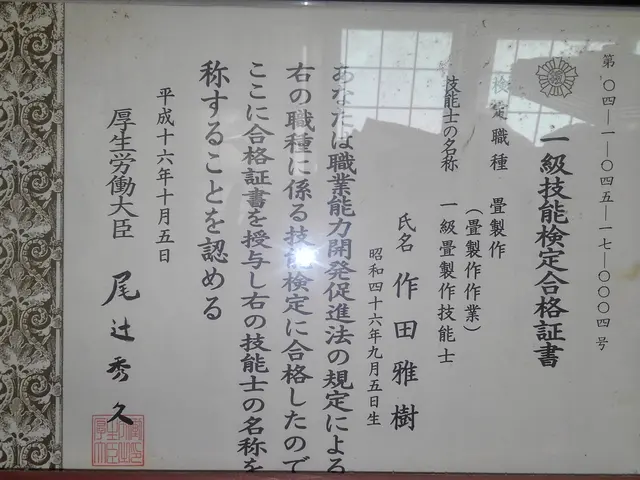 第〇四―一―〇四五―一七―〇〇〇四号
一級技能検定合格証書
検定職種 畳製作
(畳製作作業)
技能士の名称 一級畳製作技能士
氏名 作田雅樹
昭和四十六年九月五日生
あなたは職業能力開発促進法の規定による
右の職種に係る技能検定に合格したので
ここに合格証書を授与し右の技能士の名称を
称することを認める
平成十六年十月五日
厚生労働大臣 尾辻秀久